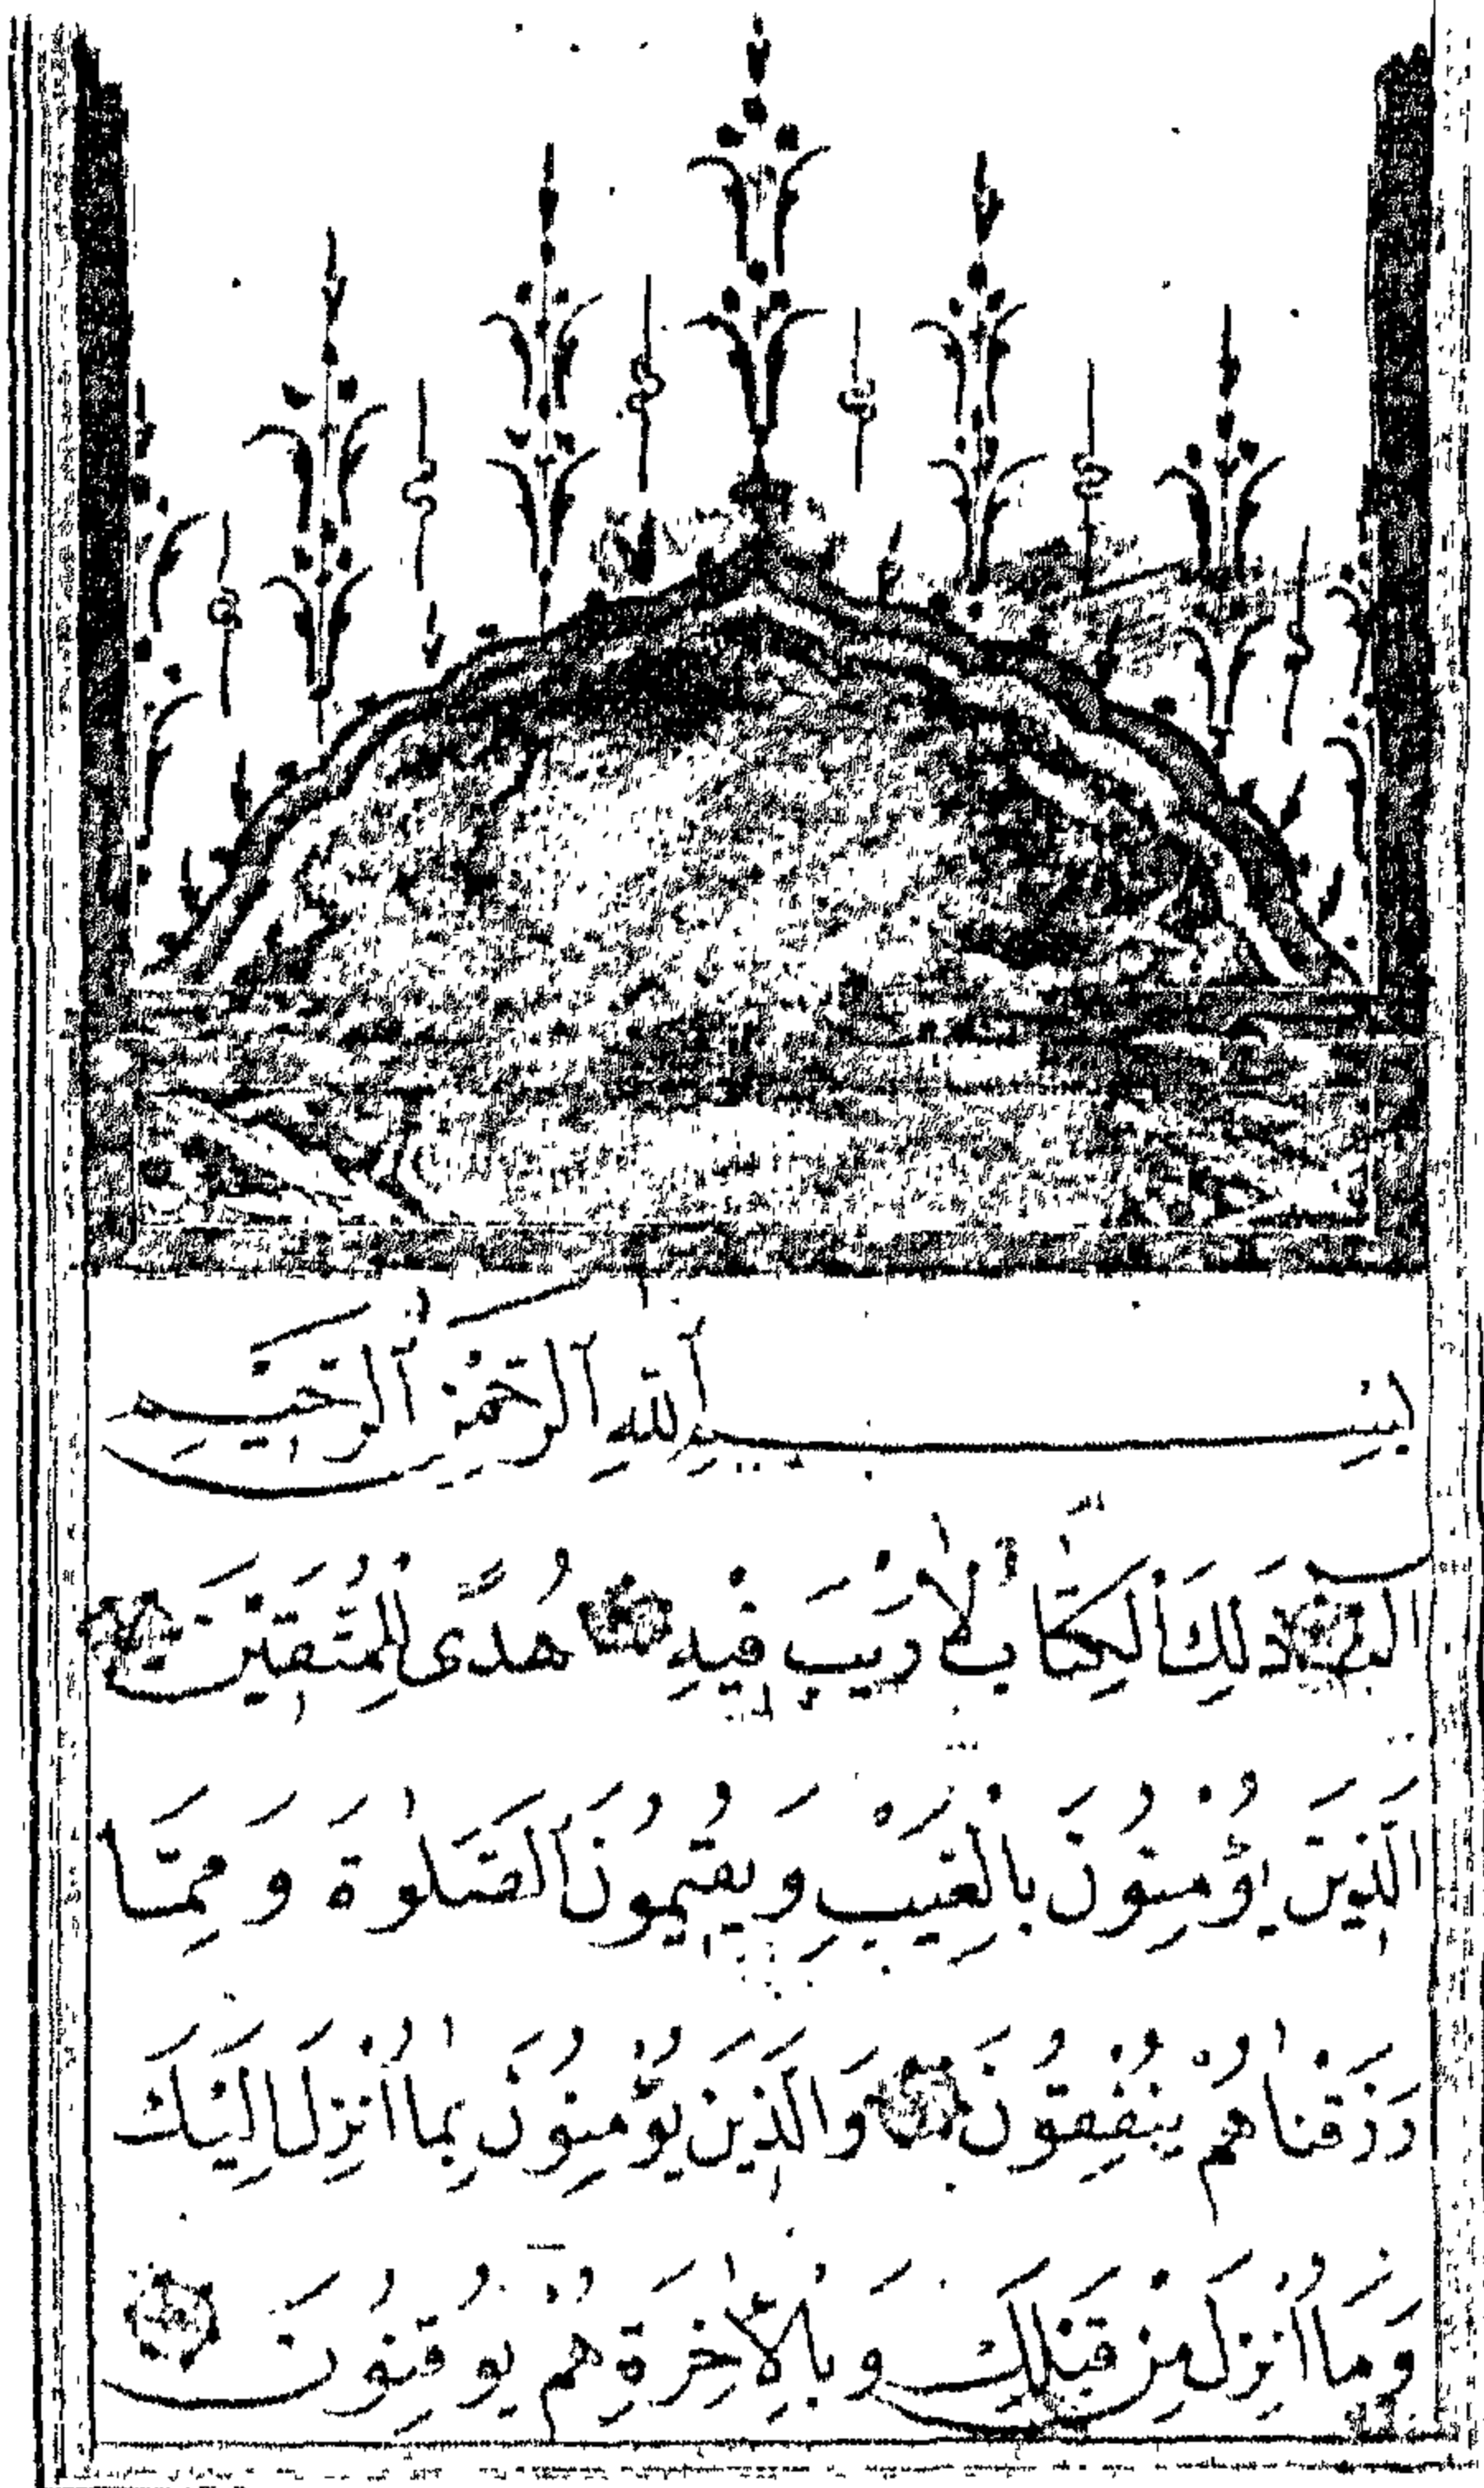 بِسْمِ اللّٰهِ الرَّحْمٰنِ الرَّحِيمِ
الم ذَلِكَ الْكِتَابُ لَا رَيْبَ فِيهِ هُدًى لِلْمُتَّقِينَ
الَّذِينَ يُؤْمِنُونَ بِالْغَيْبِ وَيُقِيمُونَ الصَّلٰوةَ وَمِمَّا
رَزَقْنَاهُمْ يُنْفِقُونَ وَالَّذِينَ يُؤْمِنُونَ بِمَا أُنْزِلَ إِلَيْكَ
وَمَا أُنْزِلَ مِنْ قَبْلِكَ وَبِالْآخِرَةِ هُمْ يُوقِنُونَ